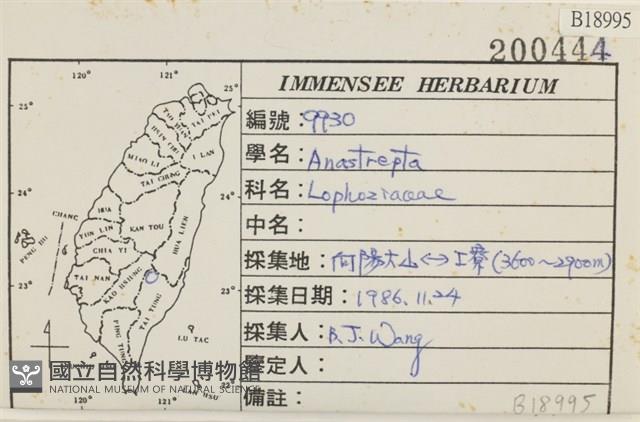 B18995
200444
IMMENSEE HERBARIUM
編號：9930
學名：Anastrepta
科名：Lophoziaceae
中名：
採集地：向陽大山<->工寮(3600~2900m)
採集日期：1986.11.24
採集人：B.J. Wang
鑒定人：
備註：
B18995
120°
121°
25°
25°
TAO YUAN
TAI PEI
HSIN CHU
I LAN
MIAO LI
TAI CHUNG
24°
24°
CHANG
HUA
NAN TOU
HUA LIEN
YUN LIN
PENG HU
CHIA YI
TAI NAN
KAO HSIUNG
23°
23°
TAI TUNG
PING TUNG
LU TAO
LAN HSU
120°
121°
國立自然科學博物館
NATIONAL MUSEUM OF NATURAL SCIENCE